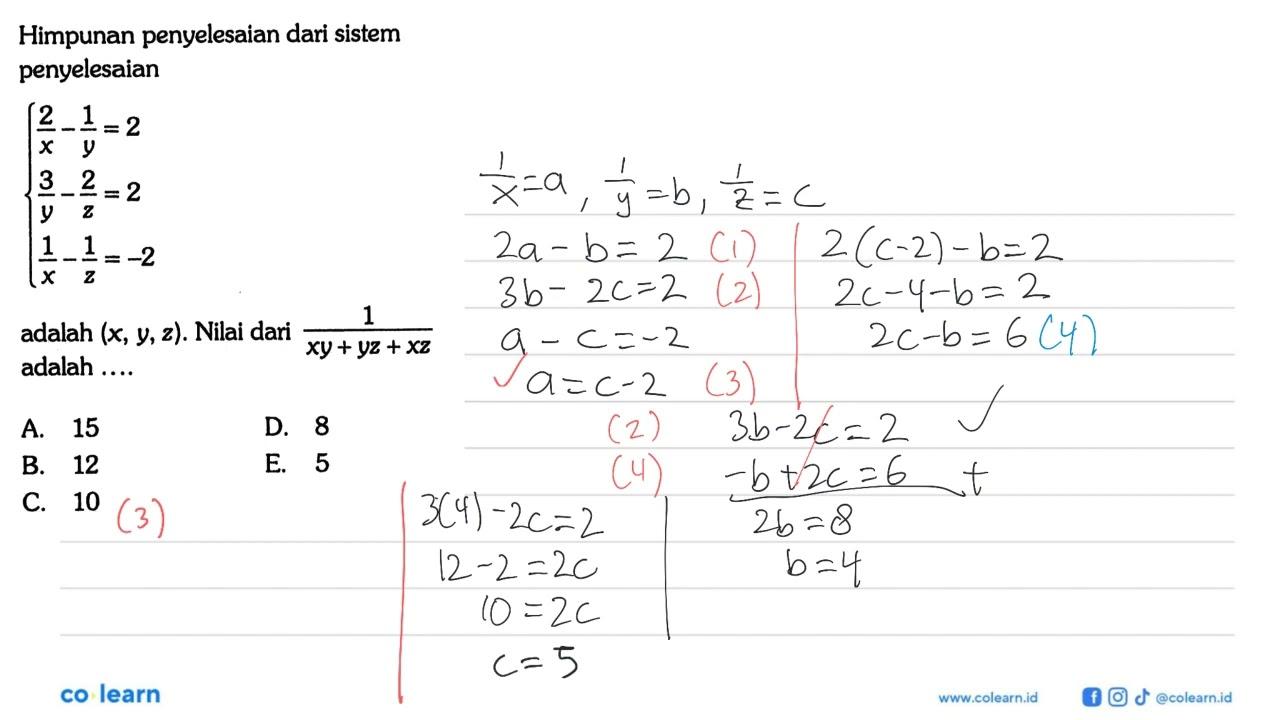 Himpunan penyelesaian dari sistem
penyelesaian
2/x - 1/y = 2
3/y - 2/z = 2
1/x - 1/z = -2
adalah (x, y, z). Nilai dari 1/(xy + yz + xz)
adalah ....
A. 15 D. 8
B. 12 E. 5
C. 10
1/x = a, 1/y = b, 1/z = c
2a - b = 2 (1)
3b - 2c = 2 (2)
a - c = -2
✓ a = c - 2 (3)
2(c-2) - b = 2
2c - 4 - b = 2
2c - b = 6 (4)
(2) 3b - 2c = 2 ✓
(4) -b + 2c = 6 +
2b = 8
b = 4
(3)
3(4) - 2c = 2
12 - 2 = 2c
10 = 2c
c = 5
co learn
www.colearn.id @colearn.id